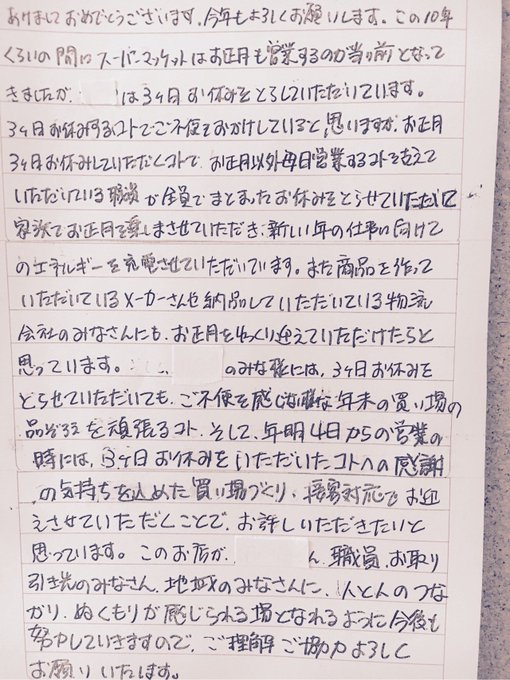 あけましておめでとうございます。今年もよろしくお願いします。この10年
くらいの間にスーパーマッケットはお正月も営業するのが当り前となって
きましたが、は3ヶ日お休みをとらしていただいています。
3ヶ日お休みするコトでご不便をおかけしていると思いますが、お正月
3ヶ日お休みしていただくコトで、お正月以外毎日営業するコトを支えて
いただいている職員が全員でまとまったお休みをとらせていただいて
家族でお正月を楽しまさせていただき、新しい年の仕事に向けて
のエネルギーを充電させていただいています。また商品を作って
いただいているメーカーさんや納品していただいている物流
会社のみなさんにも、お正月をゆっくり迎えていただけたらと
思っています。のみな様には、3ヶ日お休みを
とらせていただいても、ご不便を感じな様な年末の買い場の
品ぞろえを頑張るコト、そして、年明4日からの営業の
時には、3ヶ日お休みをいただいたコトへの感謝
の気持ちを込めた買い場づくり、接客対応でお迎
えさせていただくことで、お許しいただきたいと
思っています。このお店が、ん、職員、お取り
引き先のみなさん、地域のみなさんに、人と人のつな
がり、ぬくもりが感じられる場となれるように今後も
努力していきますので、ご理解ご協力よろしく
お願いいたします。